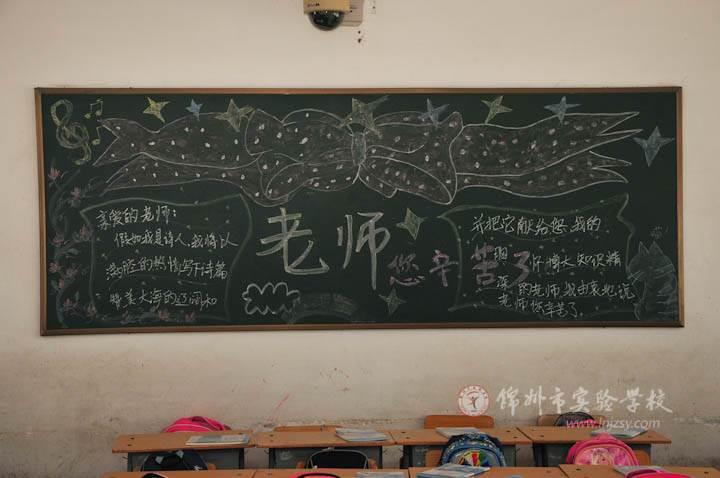 老师
您辛苦了
亲爱的老师：
假如我是诗人，我将以
满腔的热情写下诗篇
赞美大海的辽阔和
并把它献给您，我的
胸怀博大,知识精
深的老师,我由衷地说
老师您辛苦了
锦州市实验学校
www.lnjzsy.com